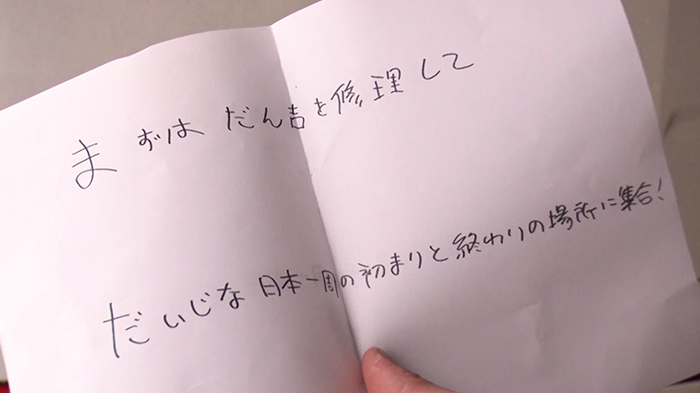 まずは だん吉を修理して
だいじな 日本一周の初まりと終わりの場所に集合!